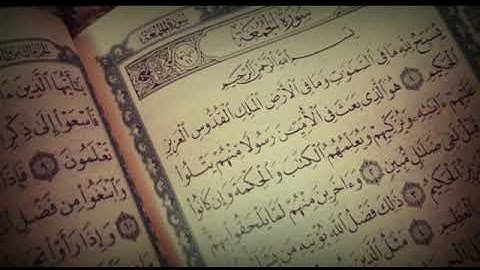 سُورَةُ الجُمُعَةِ
بِسْمِ اللَّهِ الرَّحْمَٰنِ الرَّحِيمِ
يُسَبِّحُ لِلَّهِ مَا فِى السَّمَٰوَٰتِ وَمَا فِى الْأَرْضِ الْمَلِكِ الْقُدُّوسِ الْعَزِيزِ
الْحَكِيمِ ١ هُوَ الَّذِى بَعَثَ فِى الْأُمِّيِّۦنَ رَسُولًا مِّنْهُمْ يَتْلُوا۟
عَلَيْهِمْ ءَايَٰتِهِۦ وَيُزَكِّيهِمْ وَيُعَلِّمُهُمُ الْكِتَٰبَ وَالْحِكْمَةَ وَإِن كَانُوا۟
مِن قَبْلُ لَفِى ضَلَٰلٍ مُّبِينٍ ٢ وَءَاخَرِينَ مِنْهُمْ لَمَّا يَلْحَقُوا۟ بِهِمْ
الْحَكِيمُ ٣ ذَٰلِكَ فَضْلُ اللَّهِ يُؤْتِيهِ مَن
الْعَظِيمِ ٤ مَثَلُ الَّذِينَ
سُورَةُ الجُمُعَةِ
يَٰٓأَيُّهَا الَّذِينَ
فَاسْعَوْا۟ إِلَىٰ ذِكْرِ
تَعْلَمُونَ ٩ فَإِذَا
وَابْتَغُوا۟ مِن فَضْلِ
وَإِذَا رَأَوْا۟